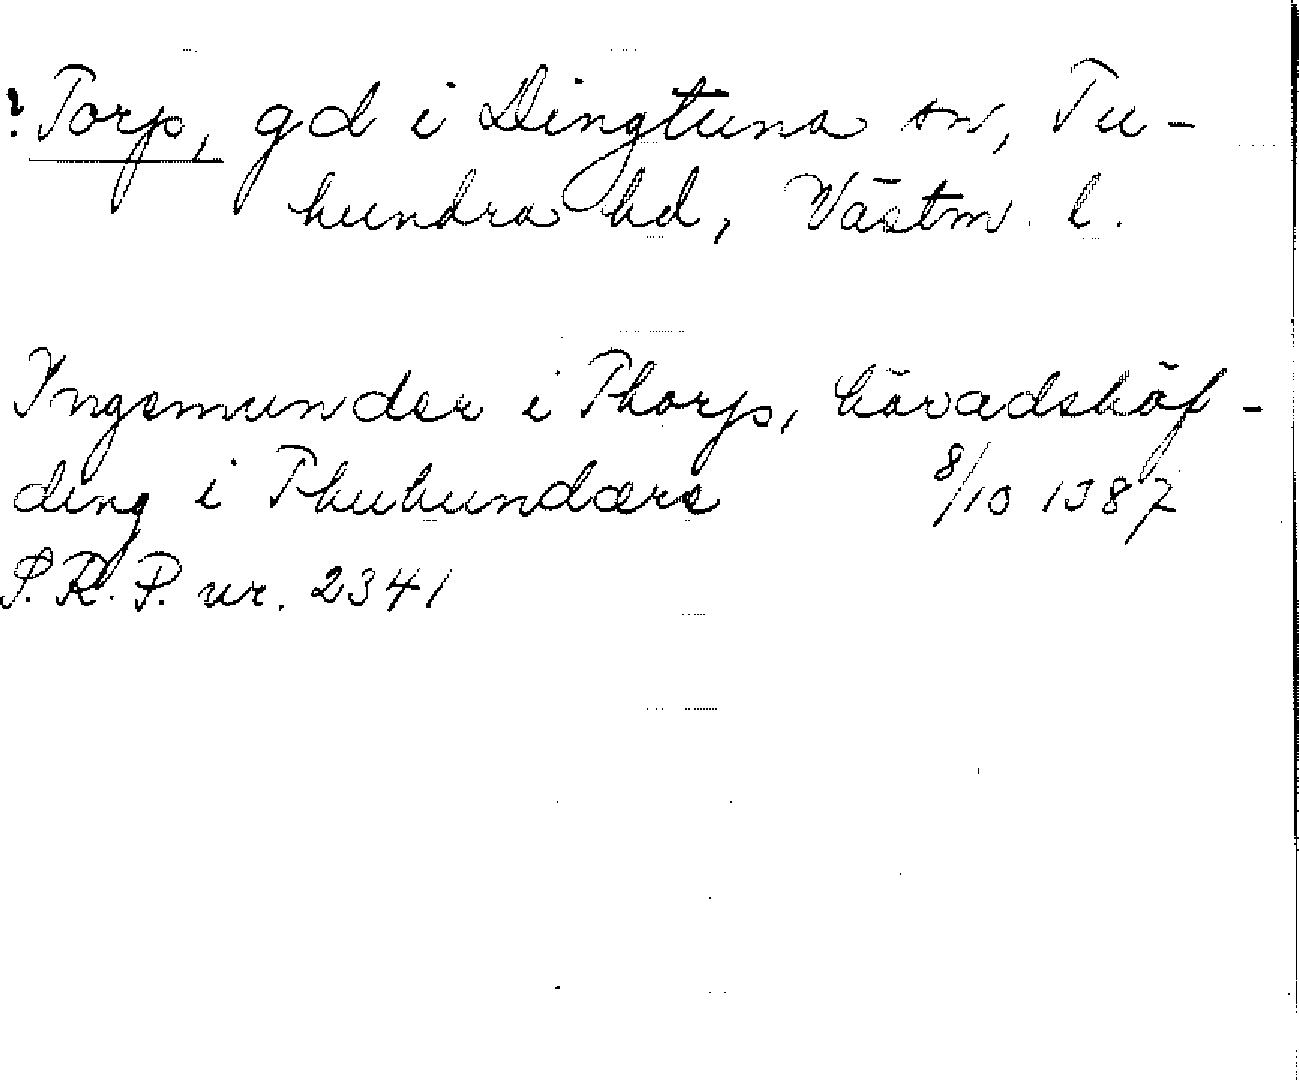 ? Torp, gd i Dingtuna sn, Tu-
hundra hd, Västm. l.
Yngemunder i Thorp, häradshöf-
ding i Thuhundære 8/10 1387
S.R.P. nr. 2341